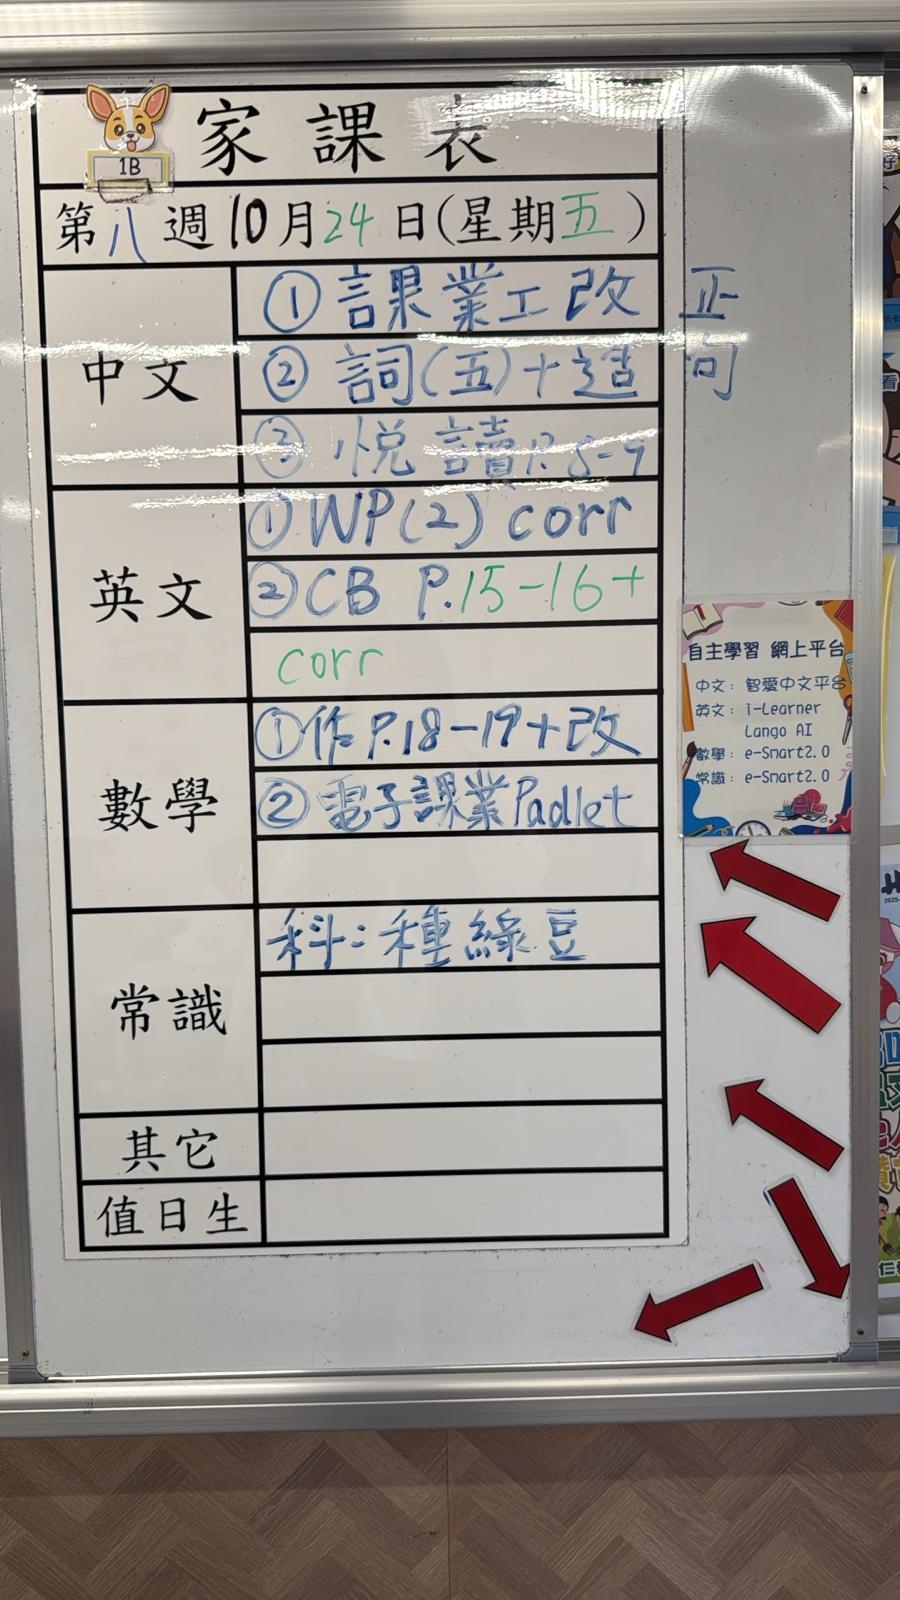 1B
家課表
第八週10月24日(星期五)
中文
① 課業工改正
② 詞(五)+造句
③ 悦讀P.8-9
英文
① WP(2) corr
② CB P.15-16+
corr
數學
① 作P.18-19+改
② 電子課業Padlet
常識
科:種綠豆
其它
值日生
自主學習 網上平台
中文：智愛中文平台
英文：i-Learner
Lango AI
數學：e-Smart2.0
常識：e-Smart2.0